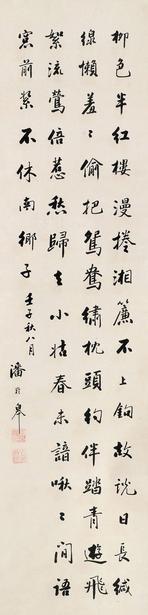 柳色半红樓漫捲湘簾不上鉤故說日長緘
線懶羞〻偷把鴛鴦繡枕頭約伴踏青遊飛
絮流鶯倍惹愁歸去小姑春未諳啾〻閒語
窓前絮不休南鄉子壬子秋八月
潘於皋